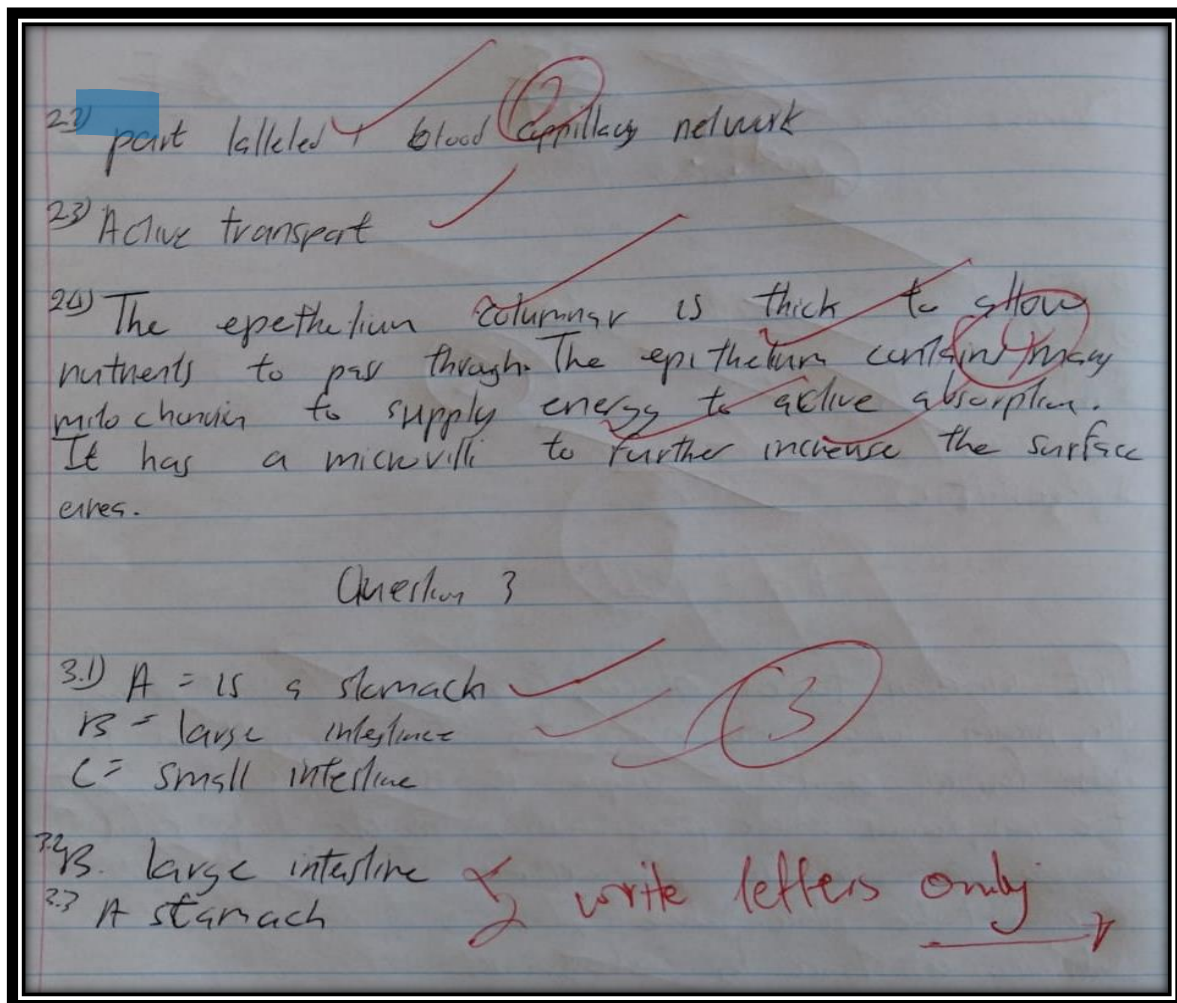 2.2) part lalleled + blood cappillary network
2
2.3) Active transport
2.4) The epethelium columnar is thick to allow
nutrients to pass through. The epithelium contains many
mitochondria to supply energy to active absorption.
It has a microvilli to further increase the surface
area.
4
Question 3
3.1) A = is a stomach
B = large intestince
C = small intestine
3
3.2 B. large intestine
3.3 A stamach
write letters only